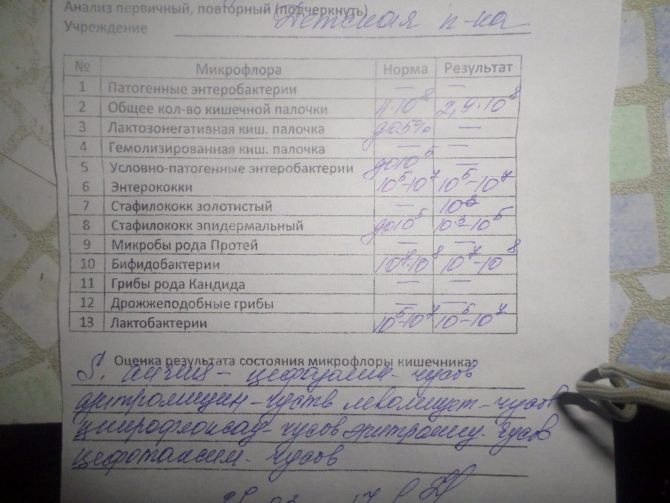 Анализ первичный, повторный (подчеркнуть)
Учреждение Детская п-ка
№ Микрофлора Норма Результат
1 Патогенные энтеробактерии — —
2 Общее кол-во кишечной палочки 4·10⁸ 2,4·10⁸
3 Лактозонегативная киш. палочка до 5% —
4 Гемолизированная киш. палочка — —
5 Условно-патогенные энтеробактерии до 10⁵ —
6 Энтерококки 10⁵-10⁷ 10⁵-10⁷
7 Стафилококк золотистый —
8 Стафилококк эпидермальный до 10⁵
9 Микробы рода Протей — —
10 Бифидобактерии 10⁷-10⁸ 10⁷-10⁸
11 Грибы рода Кандида — —
12 Дрожжеподобные грибы — —
13 Лактобактерии 10⁵-10⁷ 10⁵-10⁷
Оценка результата состояния микрофлоры кишечника:
S. - цефазолин - чусов
эритромицин - чуств левомицет - чусов
чусов чусов
цефотаксим - чусов